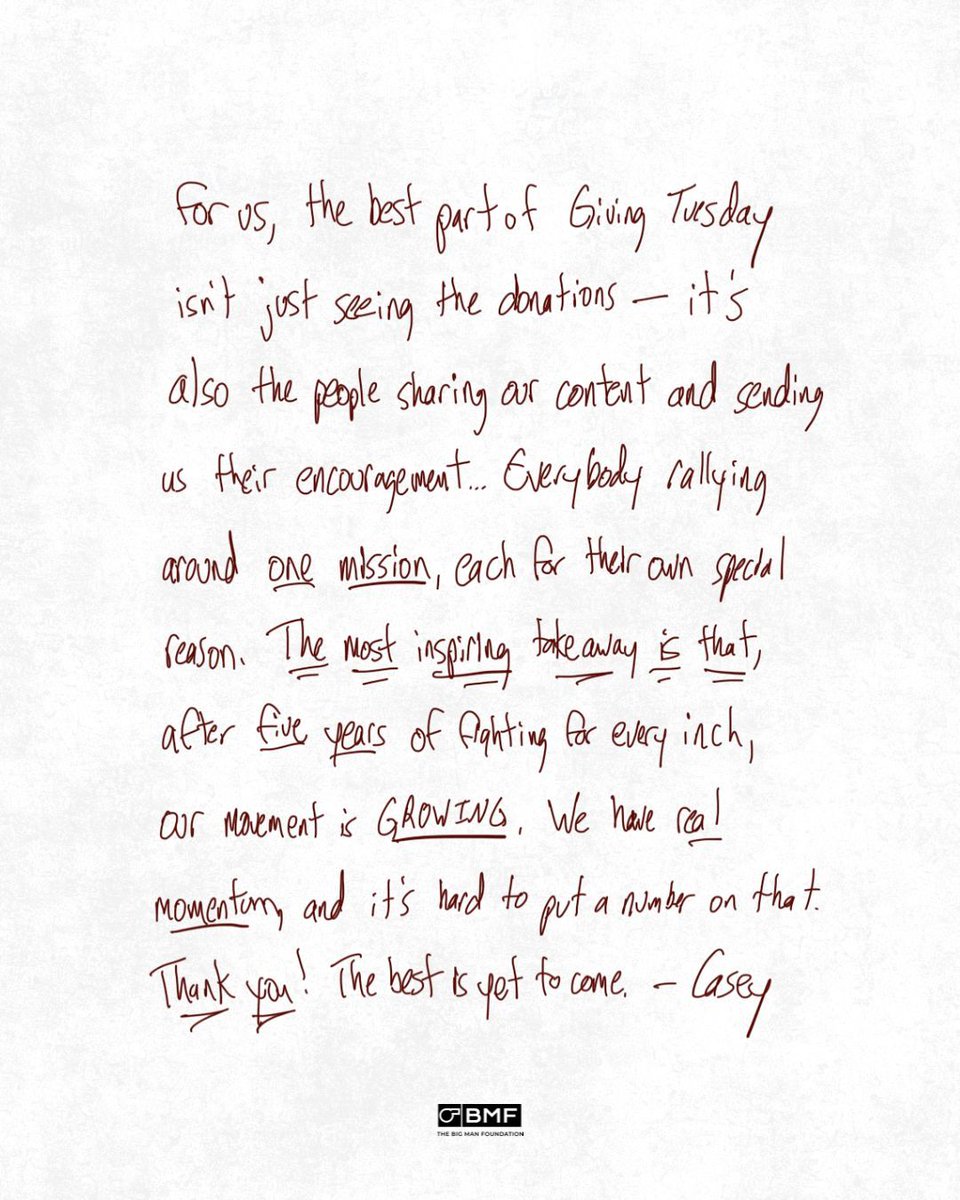 For us, the best part of Giving Tuesday
isn't just seeing the donations — it's
also the people sharing our content and sending
us their encouragement... Everybody rallying
around one mission, each for their own special
reason. The most inspiring takeaway is that,
after five years of fighting for every inch,
our movement is GROWING. We have real
momentum, and it's hard to put a number on that.
Thank you! The best is yet to come. - Casey
BMF
THE BIG MAN FOUNDATION